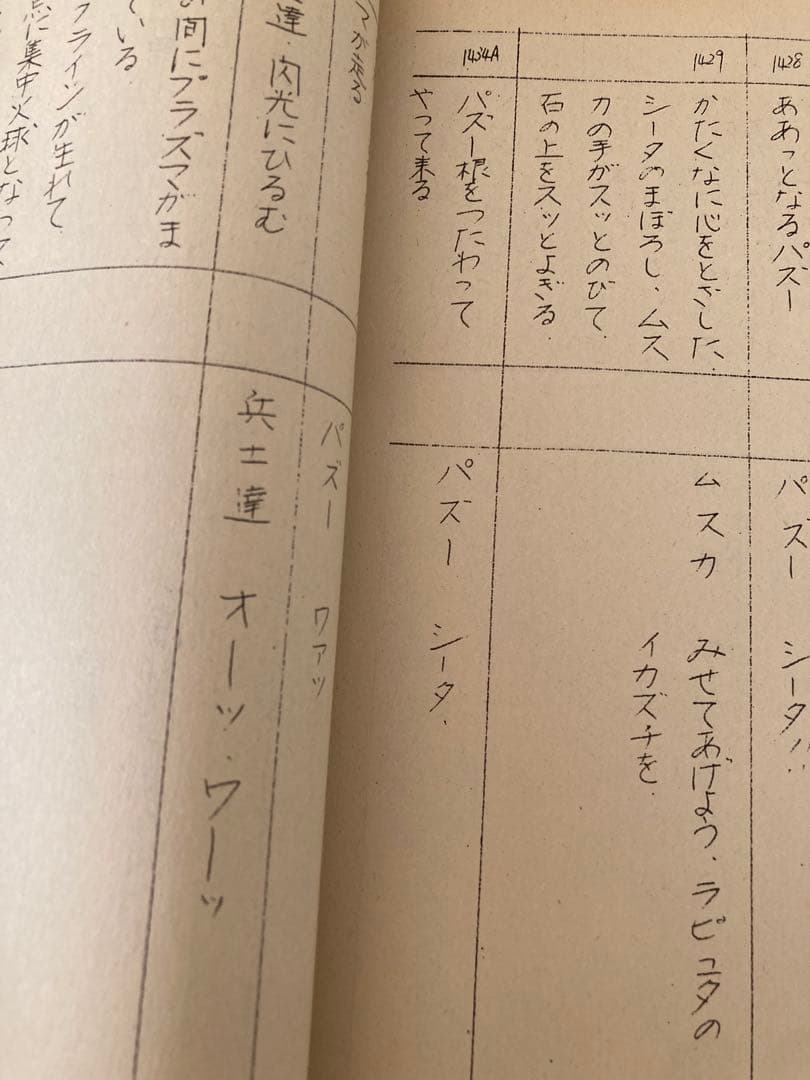 1428
ああっとなるパズー
パズー シータ!!
1429
かたくなに心をとざした、
シータのまぼろし、ムス
カの手がスッとのびて、
石の上をスッとよぎる、
ムスカ みせてあげよう、ラピュタの
イカズチを、
1434A
パズー根をつたわって
やって来る
パズー シータ、
マが
パズー ワァッ
達、閃光にひるむ
兵士達 オーッ、ワーッ
間にプラズマがま
ている、
クラインが生れて
点に集中火球となって、